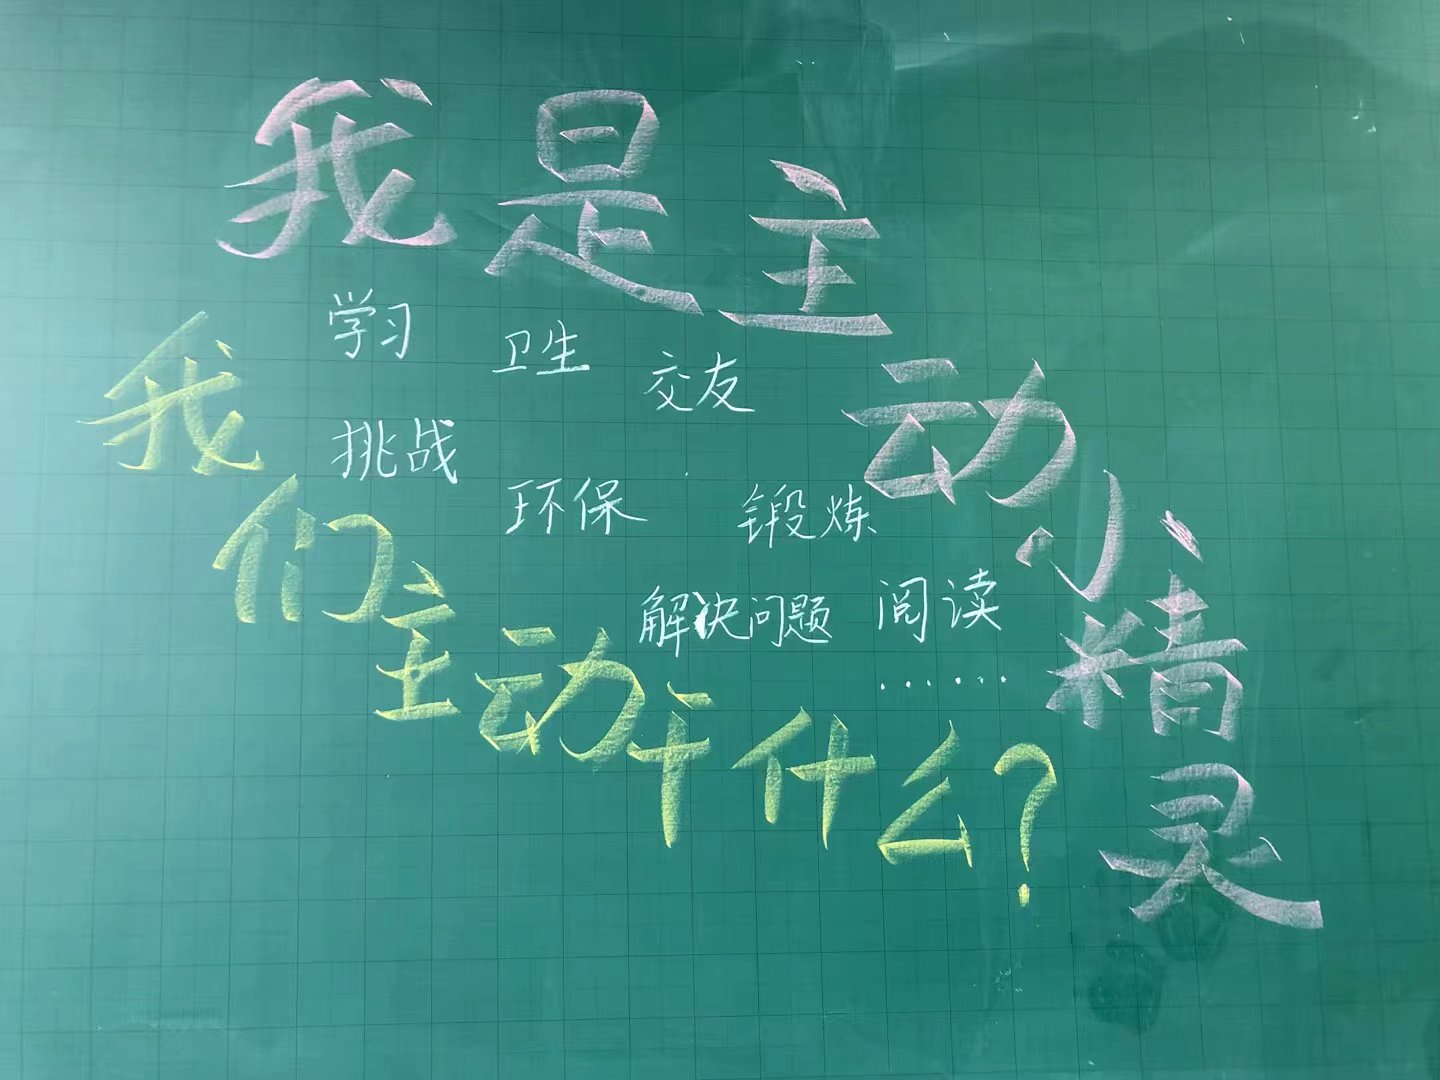 我是主动小精灵
学习 卫生 交友
挑战 环保 锻炼
解决问题 阅读
······
我们主动干什么?